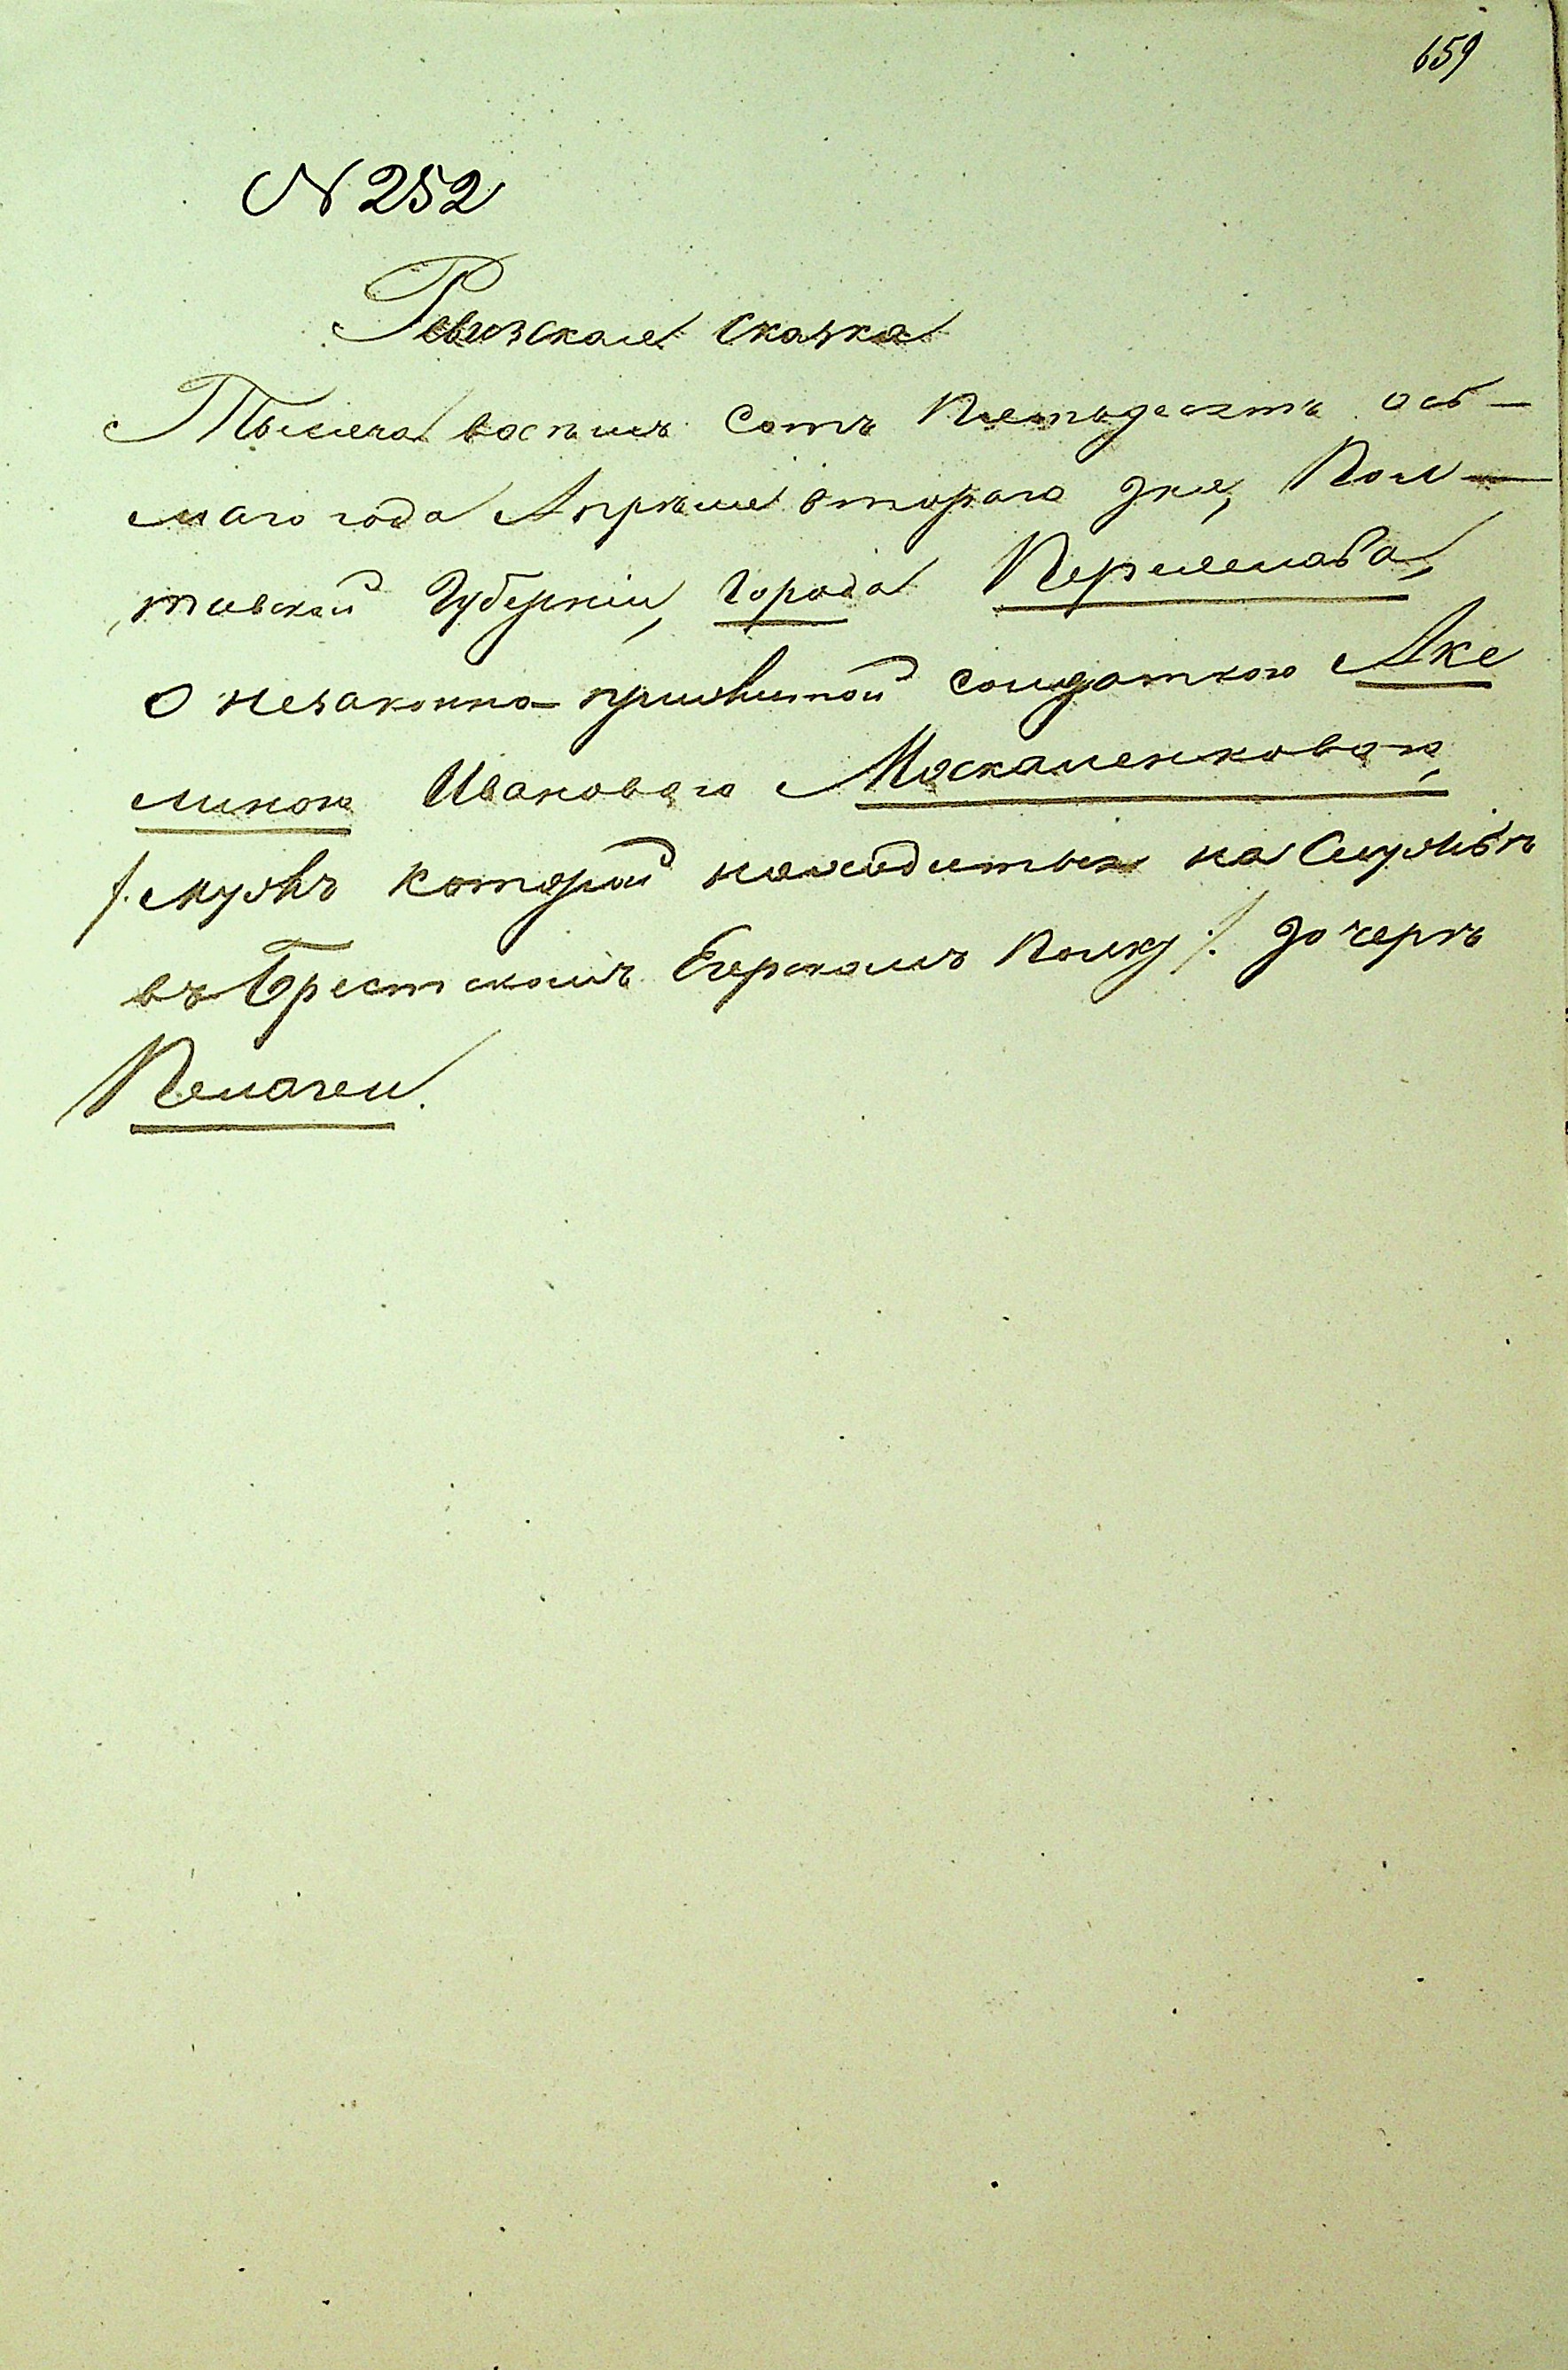 659
N 252
Ревизская сказка
Тысяча восѣмъ Сотъ Пятьдесятъ ось—
маго года Апрѣля второго дня, Пол—
тавской Губерніи, Города Переяслава,
О незаконно-прижитой солдаткою Аке
линою Ивановою Москаленковою,
/: мужъ которой находиться на Службѣ
въ Брестскомъ Егерскомъ Полку :/ дочерѣ
Пелагеи.